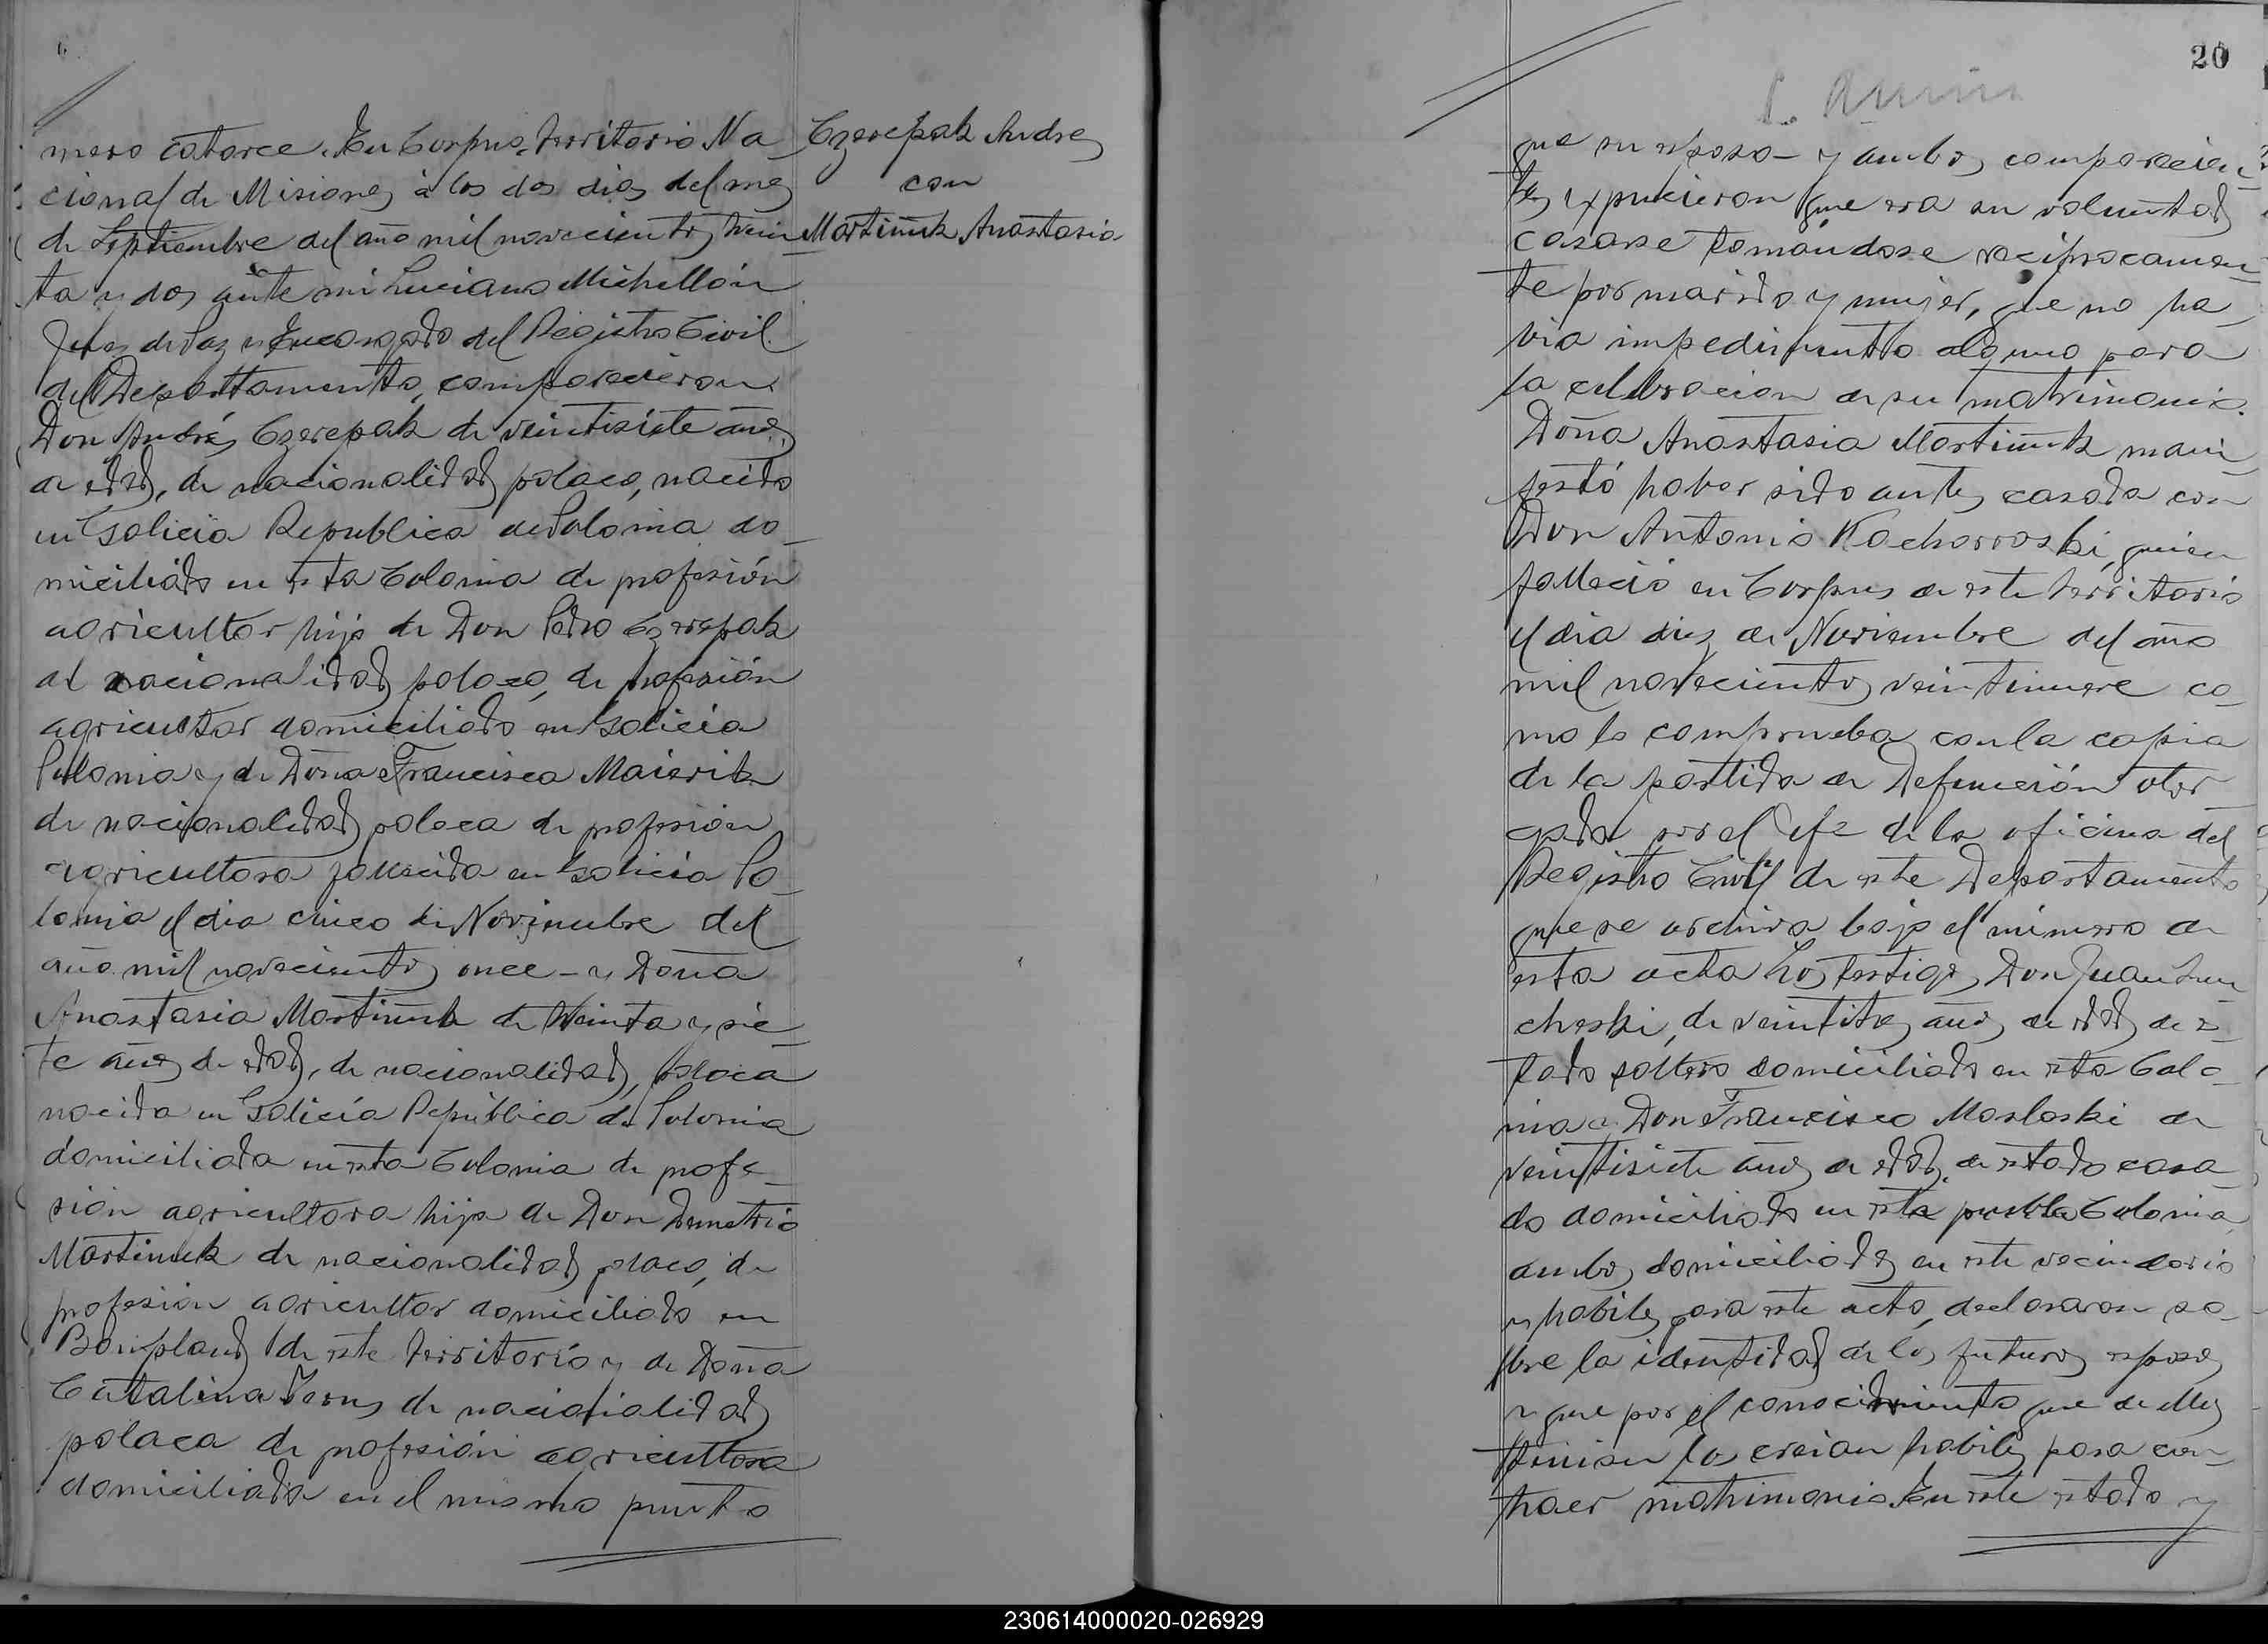 mero catorce. En Corpus, Territorio Na-
cional de Misiones à los dos dias del mes
de Septiembre del año mil novecientos trein-
ta y dos ante mi Luciano Michellón
Juez de Paz y Encargado del Registro Civil
del Departamento, comparecieron
Don Andrés Czerepak de veintisiete años
de edad, de nacionalidad polaco, nacido
en Galicia Republica de Polonia do-
miciliado en esta Colonia de profesión
agricultor hijo de Don Pedro Czerepak
de nacionalidad polaco, de profesión
agricultor domiciliado en Galicia
Polonia y de Doña Francisca Maierik
de nacionalidad polaca de profesion
agricultora fallecida en Galicia Po-
lonia el dia cinco de Noviembre del
año mil novecientos once - y Doña
Anastasia Martiniuk de treinta y sie-
te años de edad, de nacionalidad, polaca
nacida en Galicia República de Polonia
domiciliada en esta Colonia de profe-
sión agricultora hija de Don Demetrio
Martiniuk de nacionalidad polaco, de
profesion agricultor domiciliado en
Bonpland de este territorio y de Doña
Catalina de nacionalidad
polaca de profesión agricultora
domiciliada en el mismo punto
Czerepak Andres
con
Martiniuk Anastasia
20
que su esposo - y ambos comparecien-
tes expucieron que era su voluntad
casarse tomándose reciprocamen-
te por marido y mujer, que no ha-
via impedimento alguno para
la celebracion de su matrimonio.
Doña Anastasia Martiniuk mani-
festó haber sido antes casada con
Don Antonio Kachorroski, quien
falleció en Corpus de este territorio
el dia diez de Noviembre del año
mil novecientos veintinueve co-
mo lo comprueba con la copia
de la partida de Defunción otor-
gada por el Jefe de la oficina del
Registro Civil de este Departamento
que se archiva bajo el número de
esta acta Los testigos Don Juan
cheski, de veintitres años de edad de es-
tado soltero domiciliado en esta Colo-
nia y Don Francisco Masloski de
veintisiete años de edad, de estado casa-
do domiciliado en esta Colonia
ambos domiciliados en este vecindario
y habiles para este acto, declararon so-
bre la identidad de los futuros esposos
y que por el conocimiento que de ellos
tenian los creian habiles para con-
traer matrimonio. En este estado y
230614000020-026929